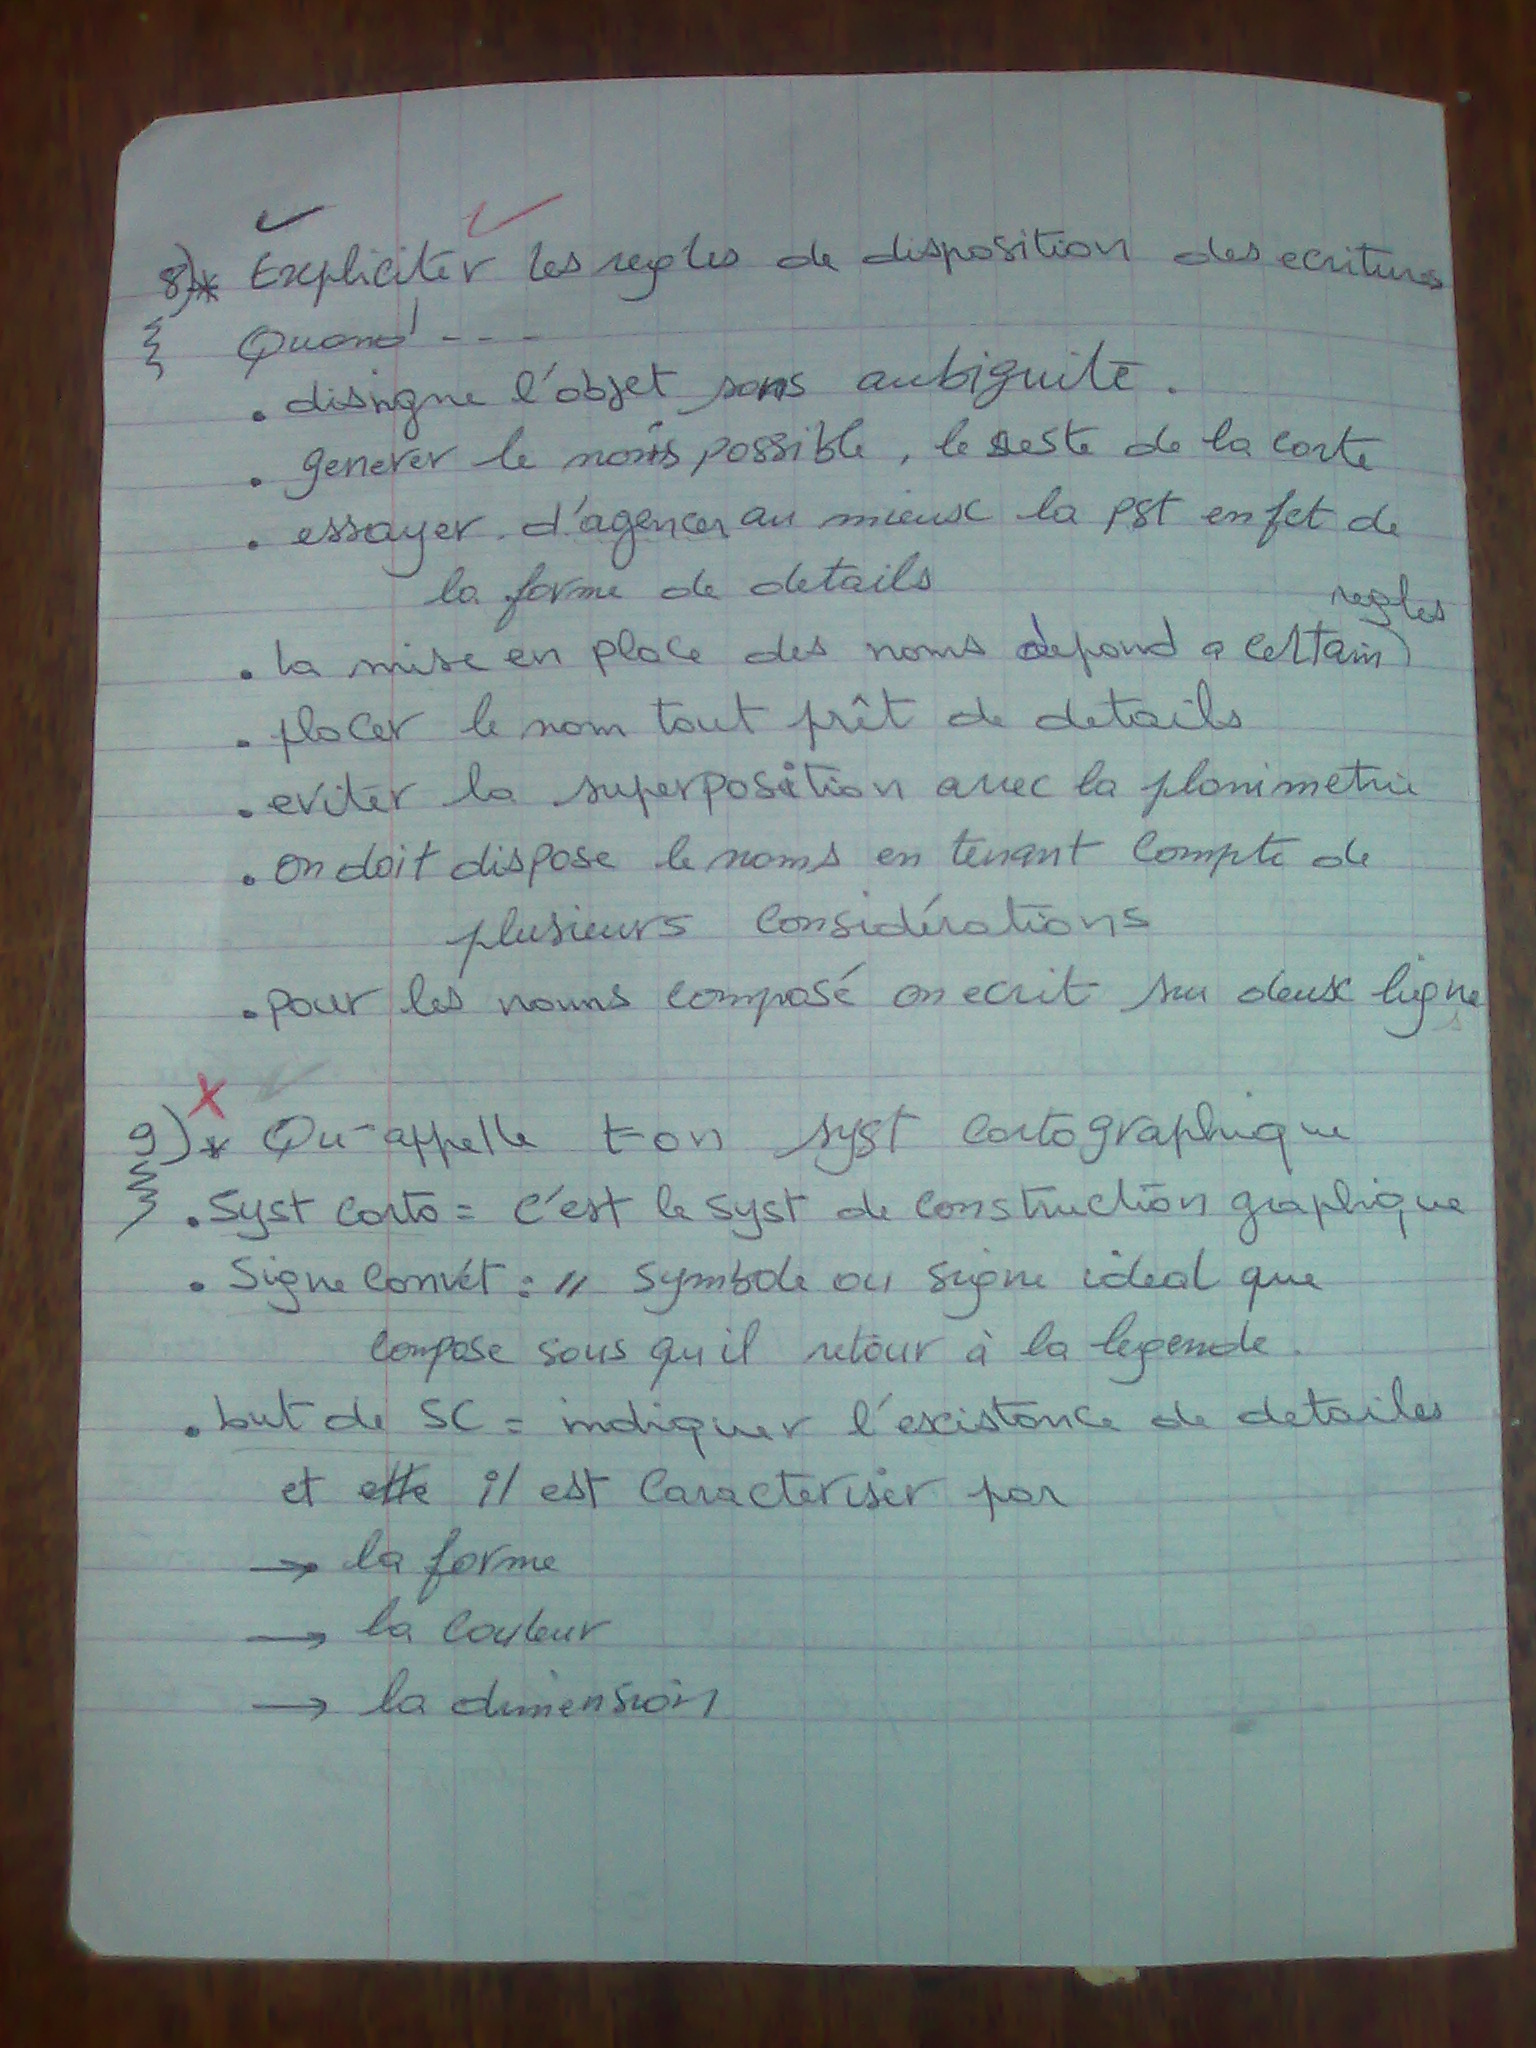 8)* Expliciter les regles de disposition des ecritures
Quand ---
. disigne l'objet sans aubiguité.
. generer le moins possible, le reste de la carte
. essayer d'agencer au mieux la pst en fct de
la forme de details
regles
. la mise en place des noms depend a certain
. placer le nom tout prêt de details
. eviter la superposition avec la planimetrie
. on doit dispose le noms en tenant compte de
plusieurs considérations
. pour les noms composé on ecrit sur deux lignes
9)* Qu-appelle t-on syst cartographique
. Syst carto = c'est le syst de construction graphique
. Signe Convt : " symbole ou signe ideal que
compose sous qu il retour à la legende.
. but de SC = indiquer l'existance de detailes
et elle il est caracteriser par
→ la forme
→ la couleur
→ la dimension